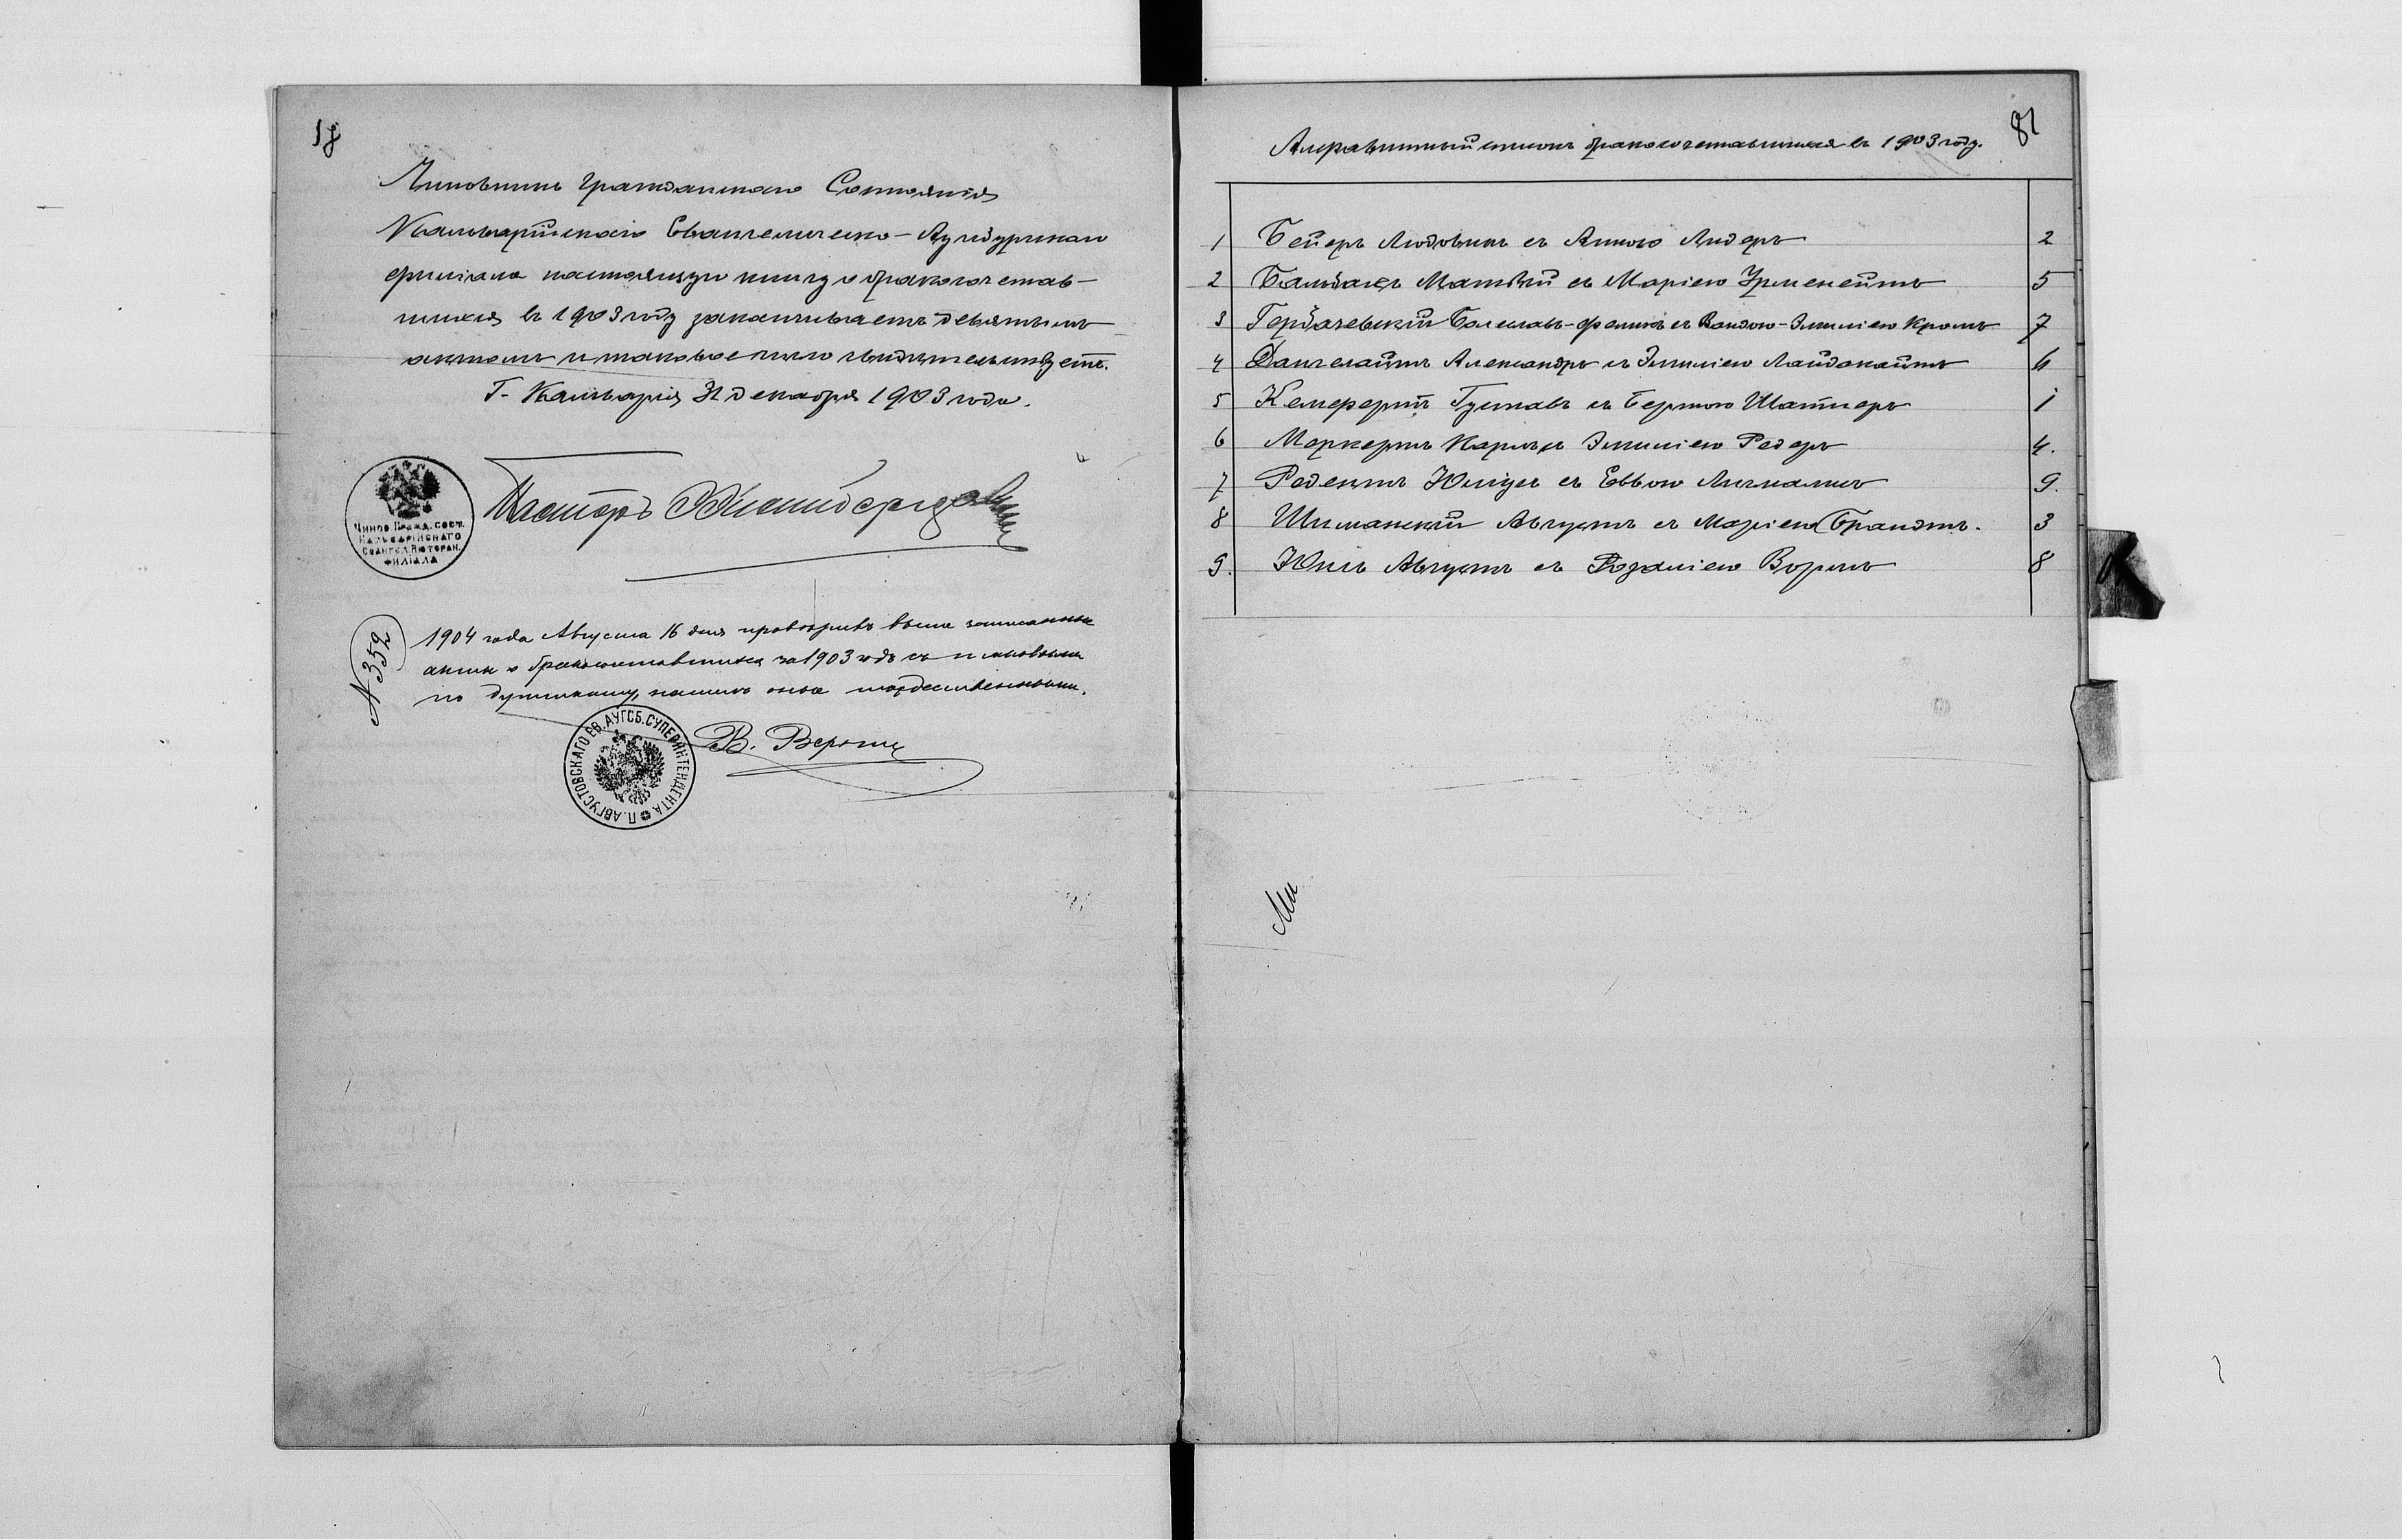 18
Чиновникъ Гражданскаго Состоянія
Кальварійскаго Евангелическо-Аугсбургскаго
филіала настоящую книгу о бракосочетав-
шихся въ 1903 году заканчиваетъ девятымъ
актомъ и таковое число свидѣтельствуетъ.
Г. Кальварія 31 декабря 1903 года.
Пасторъ
Чинов. Гражд. сост.
Кальварійскаго
Евангел. Лютеран.
филіала
N 352
1904 года Августа 16 дня провѣривъ выше записанные
акты о бракосочетавшихся за 1903 годъ съ таковыми
по дупликату, нашелъ оные тождественными.
П. АВГУСТОВСКАГО ЕВ. АУГСБ. СУПЕРИНТЕНДЕНТА
В.
81
Алфавитный списокъ бракосочетавшихся въ 1903 году.
1 Бейеръ Людовикъ съ Анною Лидеръ 2
2 Бальчацъ Матвѣй съ Маріею 5
3 Горбачевскій Болеславъ-Феликсъ съ Вандою-Эмиліею Кромъ 7
4 Дангелайтъ Александръ съ Эмиліею Лайдокайтъ 6
5 Кемфертъ Густавъ съ Бертою Шатнеръ 1
6 Маркертъ Карлъ съ Эмиліею Редеръ 4.
7 Редецкъ Юліусъ съ Еввою 9.
8 Шиманскій Августъ съ Маріею Брандтъ. 3
9. Юнгъ Августъ съ Розаліею Вормъ 8